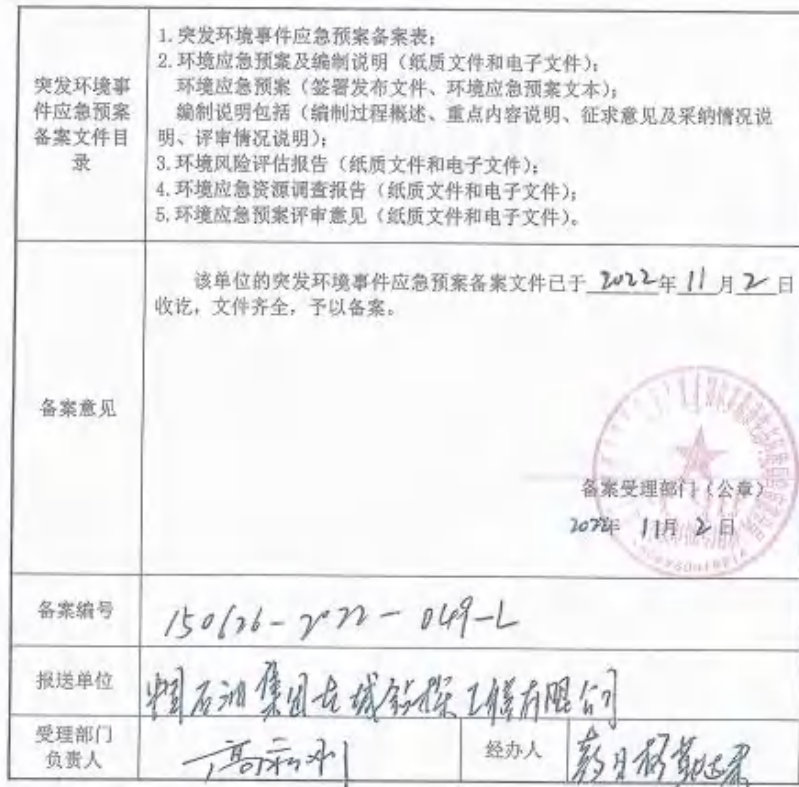 突发环境事
件应急预案
备案文件目
录
1.突发环境事件应急预案备案表;
2.环境应急预案及编制说明（纸质文件和电子文件）;
环境应急预案（签署发布文件、环境应急预案文本）;
编制说明包括（编制过程概述、重点内容说明、征求意见及采纳情况说
明、评审情况说明）;
3.环境风险评估报告（纸质文件和电子文件）;
4.环境应急资源调查报告（纸质文件和电子文件）;
5.环境应急预案评审意见（纸质文件和电子文件）。
备案意见
该单位的突发环境事件应急预案备案文件已于 2022年 11 月 2 日
收讫，文件齐全，予以备案。
备案受理部门（公章）
2022年 11月 2日
备案编号
150626-2022-049-L
报送单位
中国石油集团长城钻探工程有限公司
受理部门
负责人
经办人